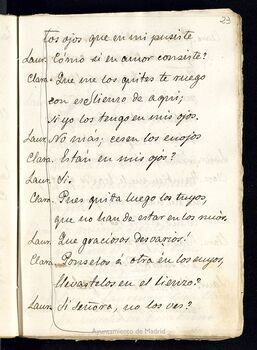 23
tos ojos, que en mi pusiste
Laur. Cómo si en amor consiste?
Clara. Que me los quites te ruego
con ese lienzo de aqui;
si yo los tengo en mis ojos.
Laur. No más; cesen los enojos
Clara. Están en mis ojos?
Laur. Si.
Clara. Pues quita luego los tuyos,
que no han de estar en los mios.
Laur. Que graciosos desvarios!
Clara. Ponselos á otra en los suyos,
llevastelos en el lienzo?
Laur. Si señora, no los ves?
Ayuntamiento de Madrid